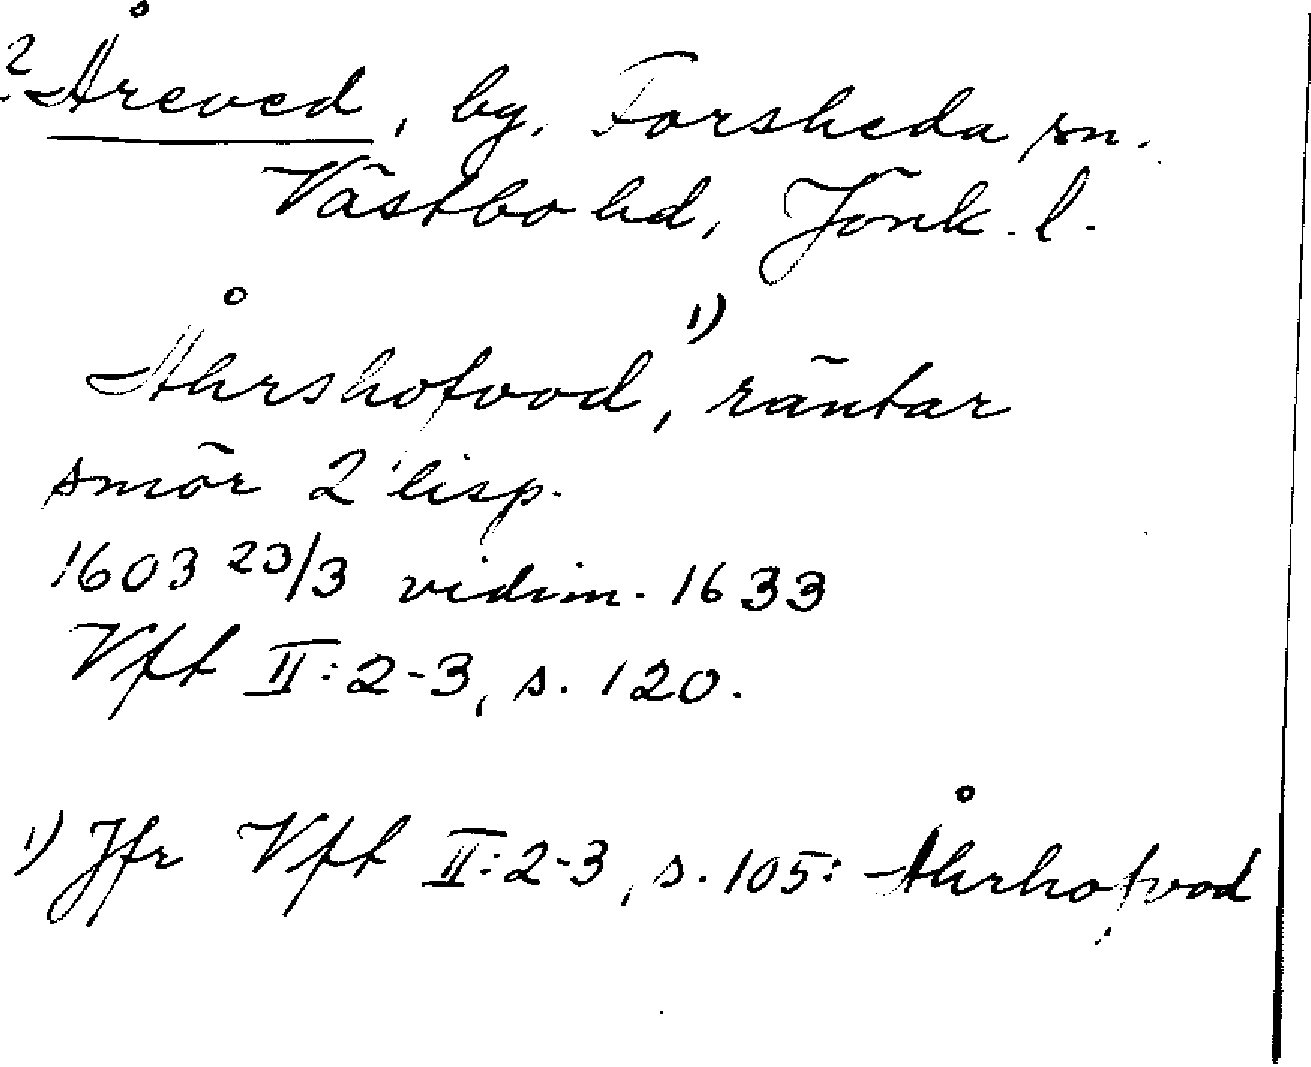 ? Åreved, by, Forsheda sn.
Västbo hd, Jönk. l.
Åhrshofvod,¹⁾ räntar
smör 2 lisp.
1603 23/3 vidim. 1633
Vft II:2-3, s. 120.
1) Jfr Vft II:2-3, s. 105: Åhrhofvod